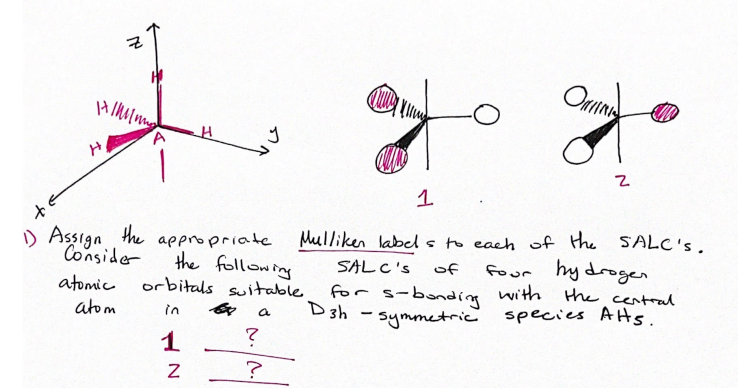 Z
H
H
H
H
A
y
x
1
2
1) Assign the appropriate Mulliken labels to each of the SALC's.
Consider the following SALC's of four hydrogen
atomic orbitals suitable for s-bonding with the central
atom in a D3h-symmetric species AH5.
1 ?
2 ?